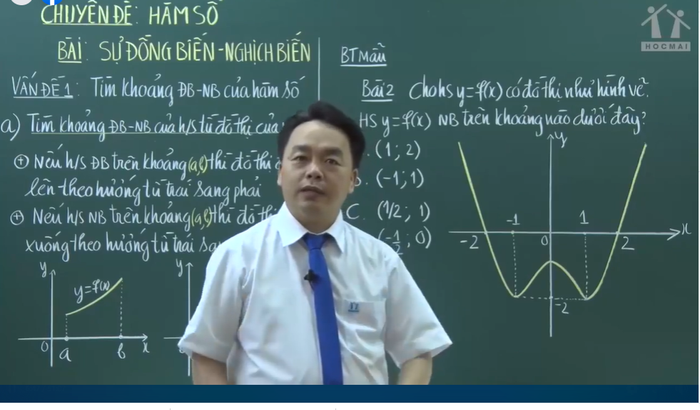 CHUYÊN ĐỀ: HÀM SỐ
BÀI: SỰ ĐỒNG BIẾN - NGHỊCH BIẾN
VẤN ĐỀ 1: Tìm khoảng ĐB-NB của hàm số
a) Tìm khoảng ĐB-NB của h/s từ đồ thị của
+ Nếu h/s ĐB trên khoảng (a,b) thì đồ thị
lên theo hướng từ trái sang phải
+ Nếu h/s NB trên khoảng (a,b) thì đồ thị
xuống theo hướng từ trái
y
y = f(x)
0 a b x
y
BT Mẫu
Bài 2 Cho hs y = f(x) có đồ thị như hình vẽ.
HS y = f(x) NB trên khoảng nào dưới đây?
(1; 2)
(-1; 1)
C. (1/2; 1)
(-1/2; 0)
y
-1 1
-2 0 2 x
-2
HOCMAI